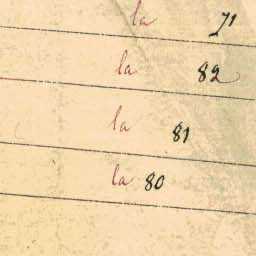 la 71
la 82
la 81
la 80